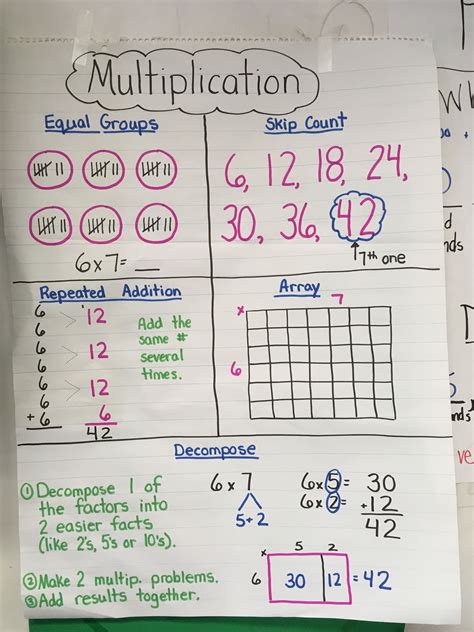 Multiplication
Equal Groups
6x7= __
Skip Count
6, 12, 18, 24,
30, 36, 42
7th one
Repeated Addition
6
6 > 12
6
6 > 12
6
6 > 12
+6 6
42
Add the
same #
several
times.
Array
x 7
6
Decompose
① Decompose 1 of
the factors into
2 easier facts
(like 2's, 5's or 10's).
② Make 2 multip. problems.
③ Add results together.
6x7
5+2
6x5= 30
6x2= +12
42
x 5 2
6 30 12 =42